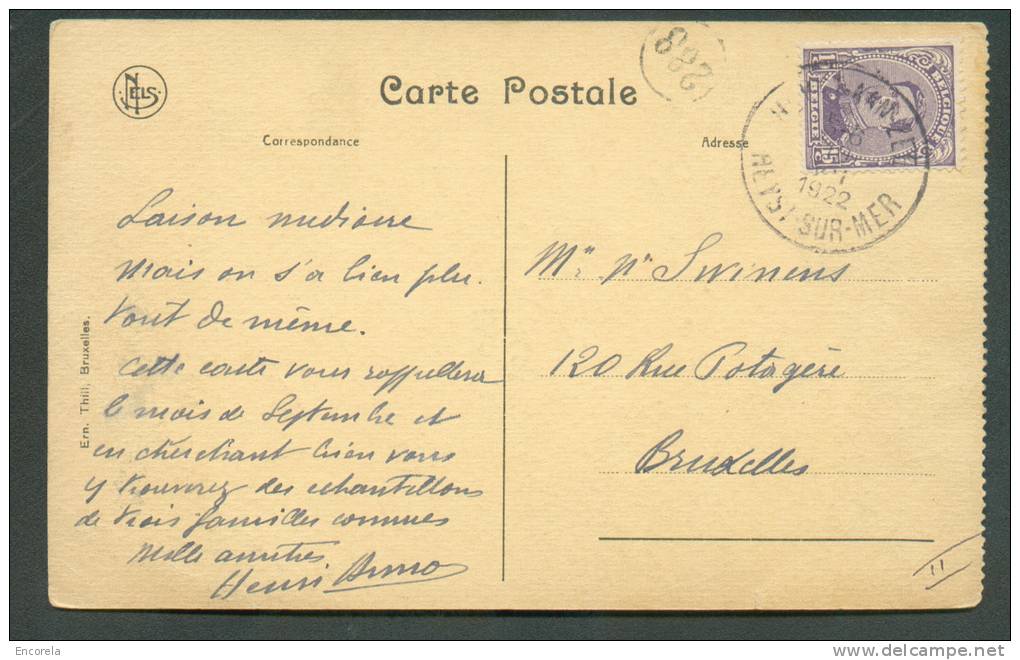 NELS
Carte Postale
228
BELGIQUE
BELGIË
15
1922
SUR-MER
Correspondance
Adresse
Saison médiocre
Mais on s'a bien plu
tout de même.
Cette carte vous rappellera
le mois de Septembre et
en cherchant bien vous
y trouverez des echantillons
de trois familles connues
Mille amitiés
Henri
Mr Swinens
120 Rue Potagère
Bruxelles
Ern. Thill, Bruxelles.
11
Encorela
www.delcampe.net